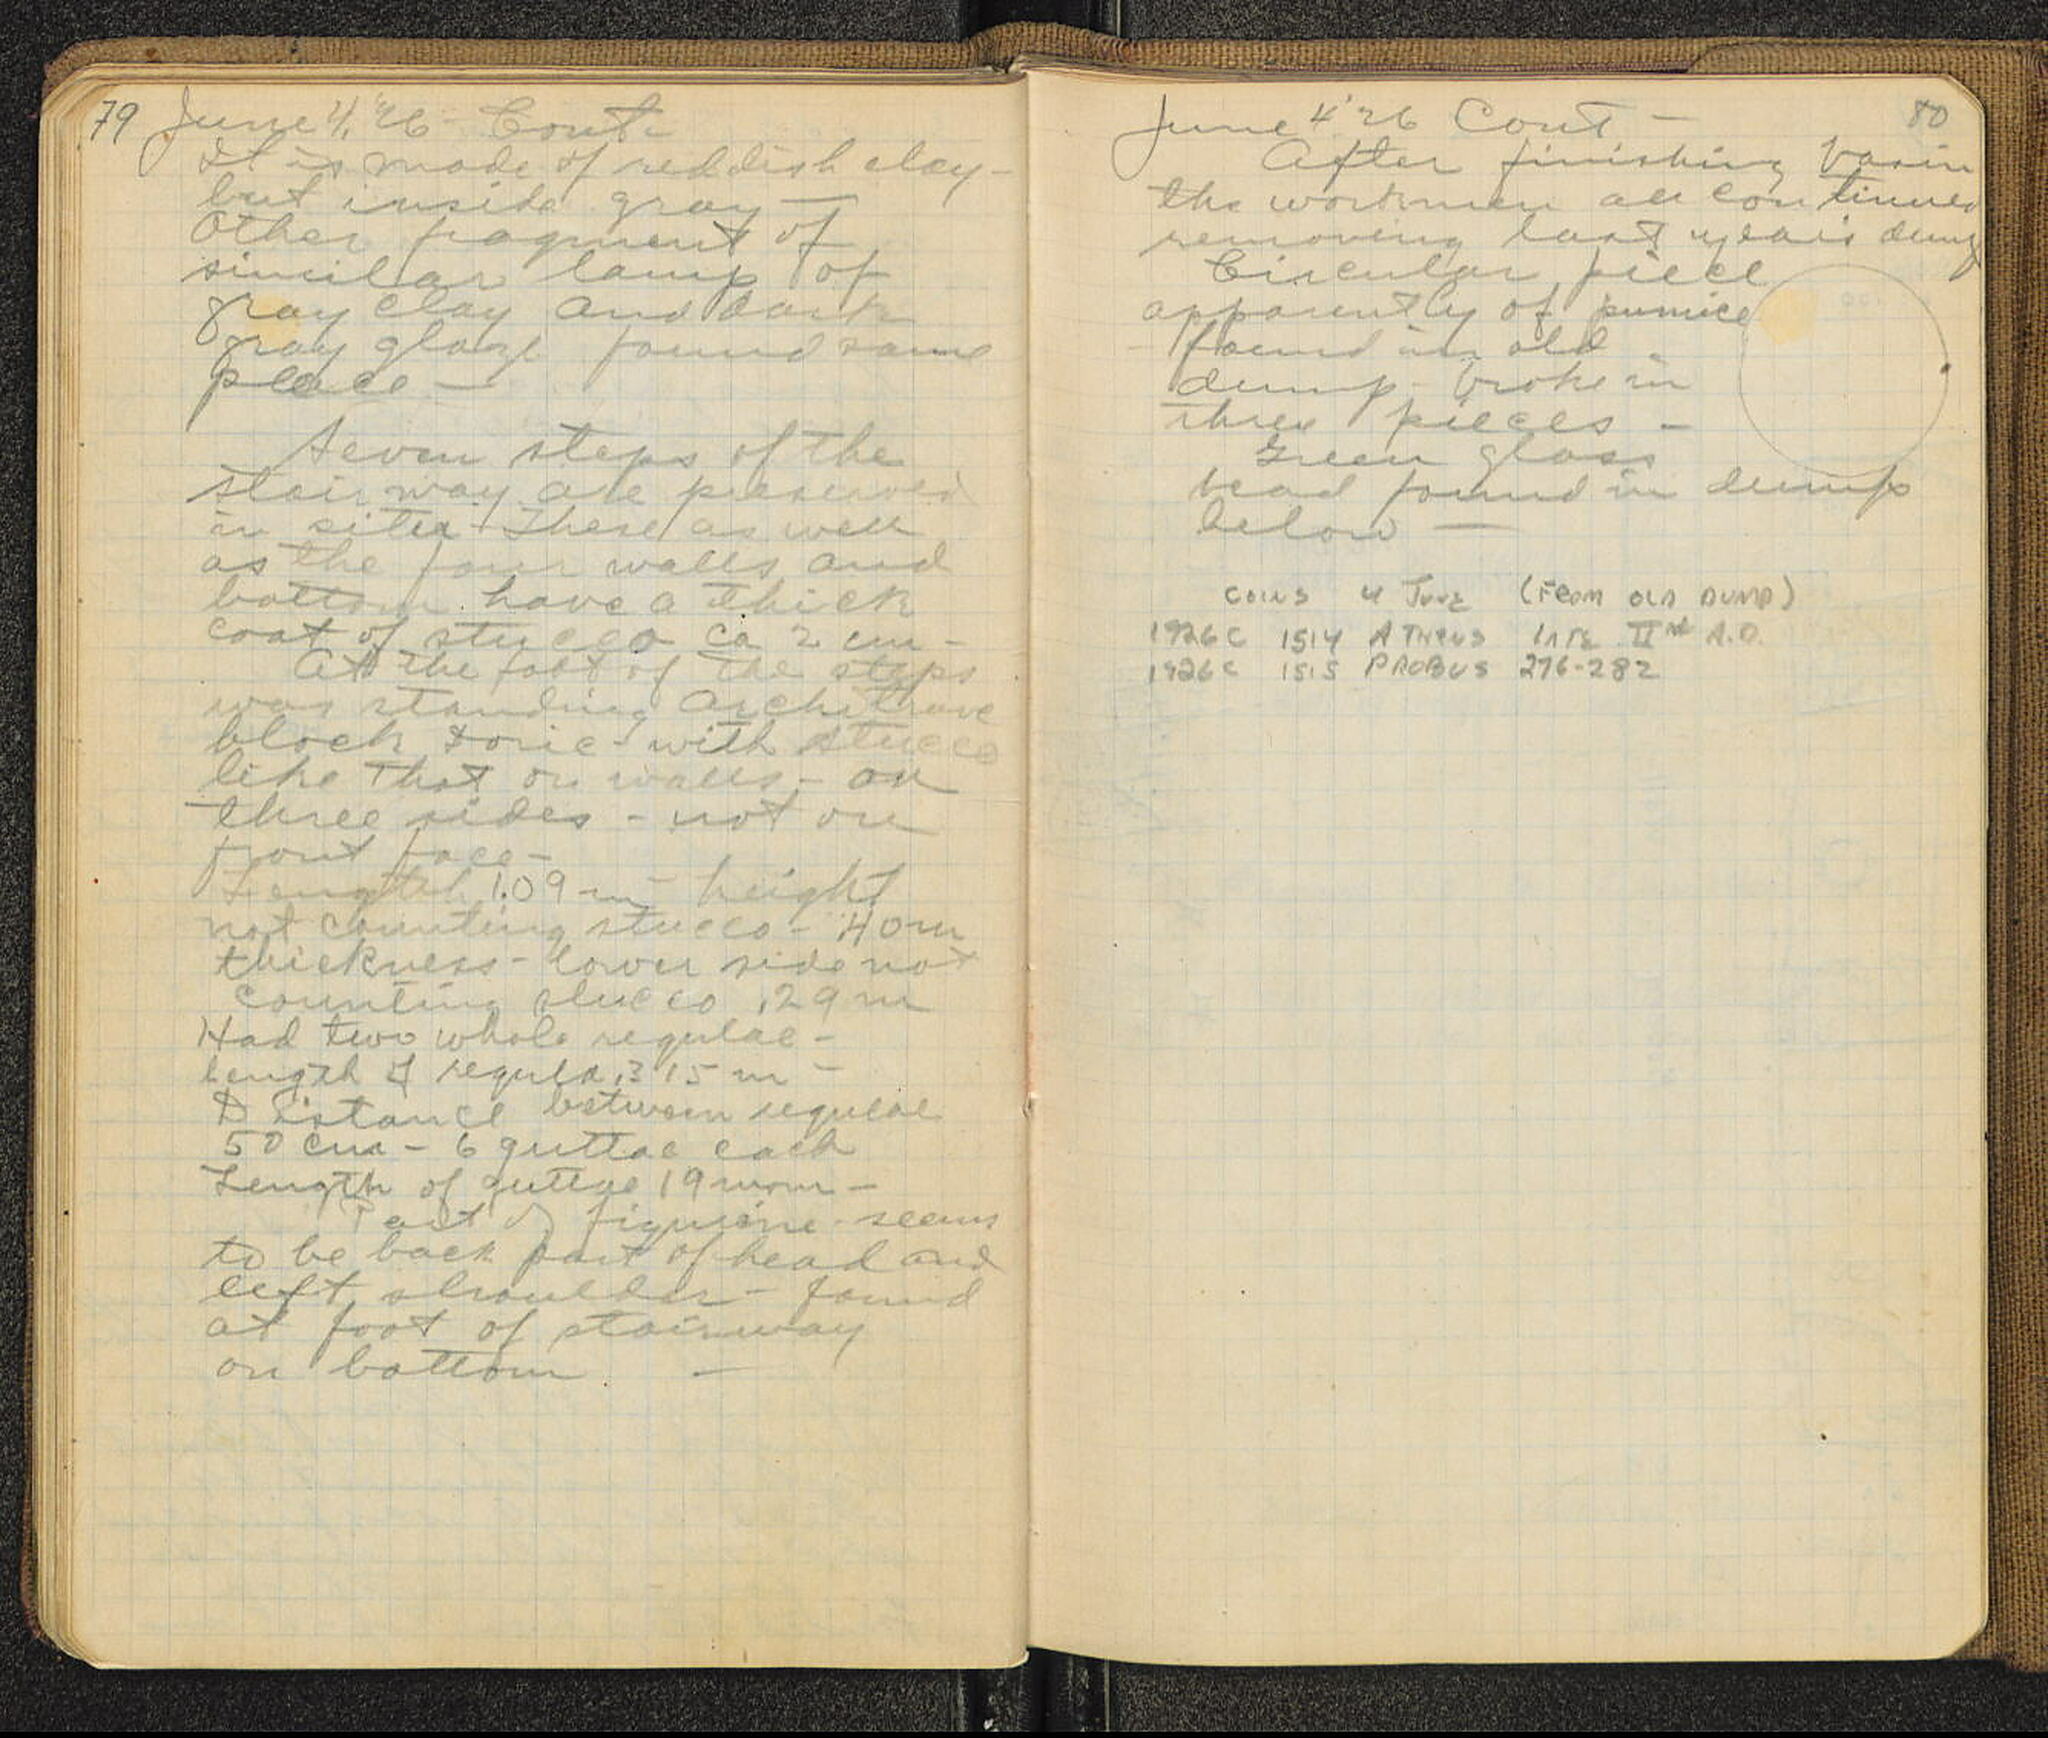 79 June 4, '26 Cont.
It is made of reddish clay -
but inside gray —
Other fragment of
similar lamp of
gray clay and dark
gray glaze found same
place —
Seven steps of the
stairway are preserved
in situ - These as well
as the four walls and
bottom have a thick
coat of stucco ca 2 cm -
At the foot of the steps
was standing architrave
block Doric - with stucco
like that on walls - on
three sides - not on
front face -
Length 1.09 m - height
not counting stucco - .40 m
thickness - lower side not
counting stucco .29 m
Had two whole regulae -
length of regula .315 m -
Distance between regulae
50 cm - 6 guttae each
Length of guttae 19 mm -
Part of figurine - seems
to be back part of head and
left shoulder - found
at foot of stairway
on bottom —
80
June 4 '26 Cont —
After finishing basin
the workmen all continued
removing last year's dump
Circular piece
apparently of pumice
found in old
dump - broke in
three pieces -
Green glass
bead found in dump
below —
COINS 4 JUNE (FROM OLD DUMP)
1926C 1514 ATHENS LATE IInd A.D.
1926C 1515 PROBUS 276-282